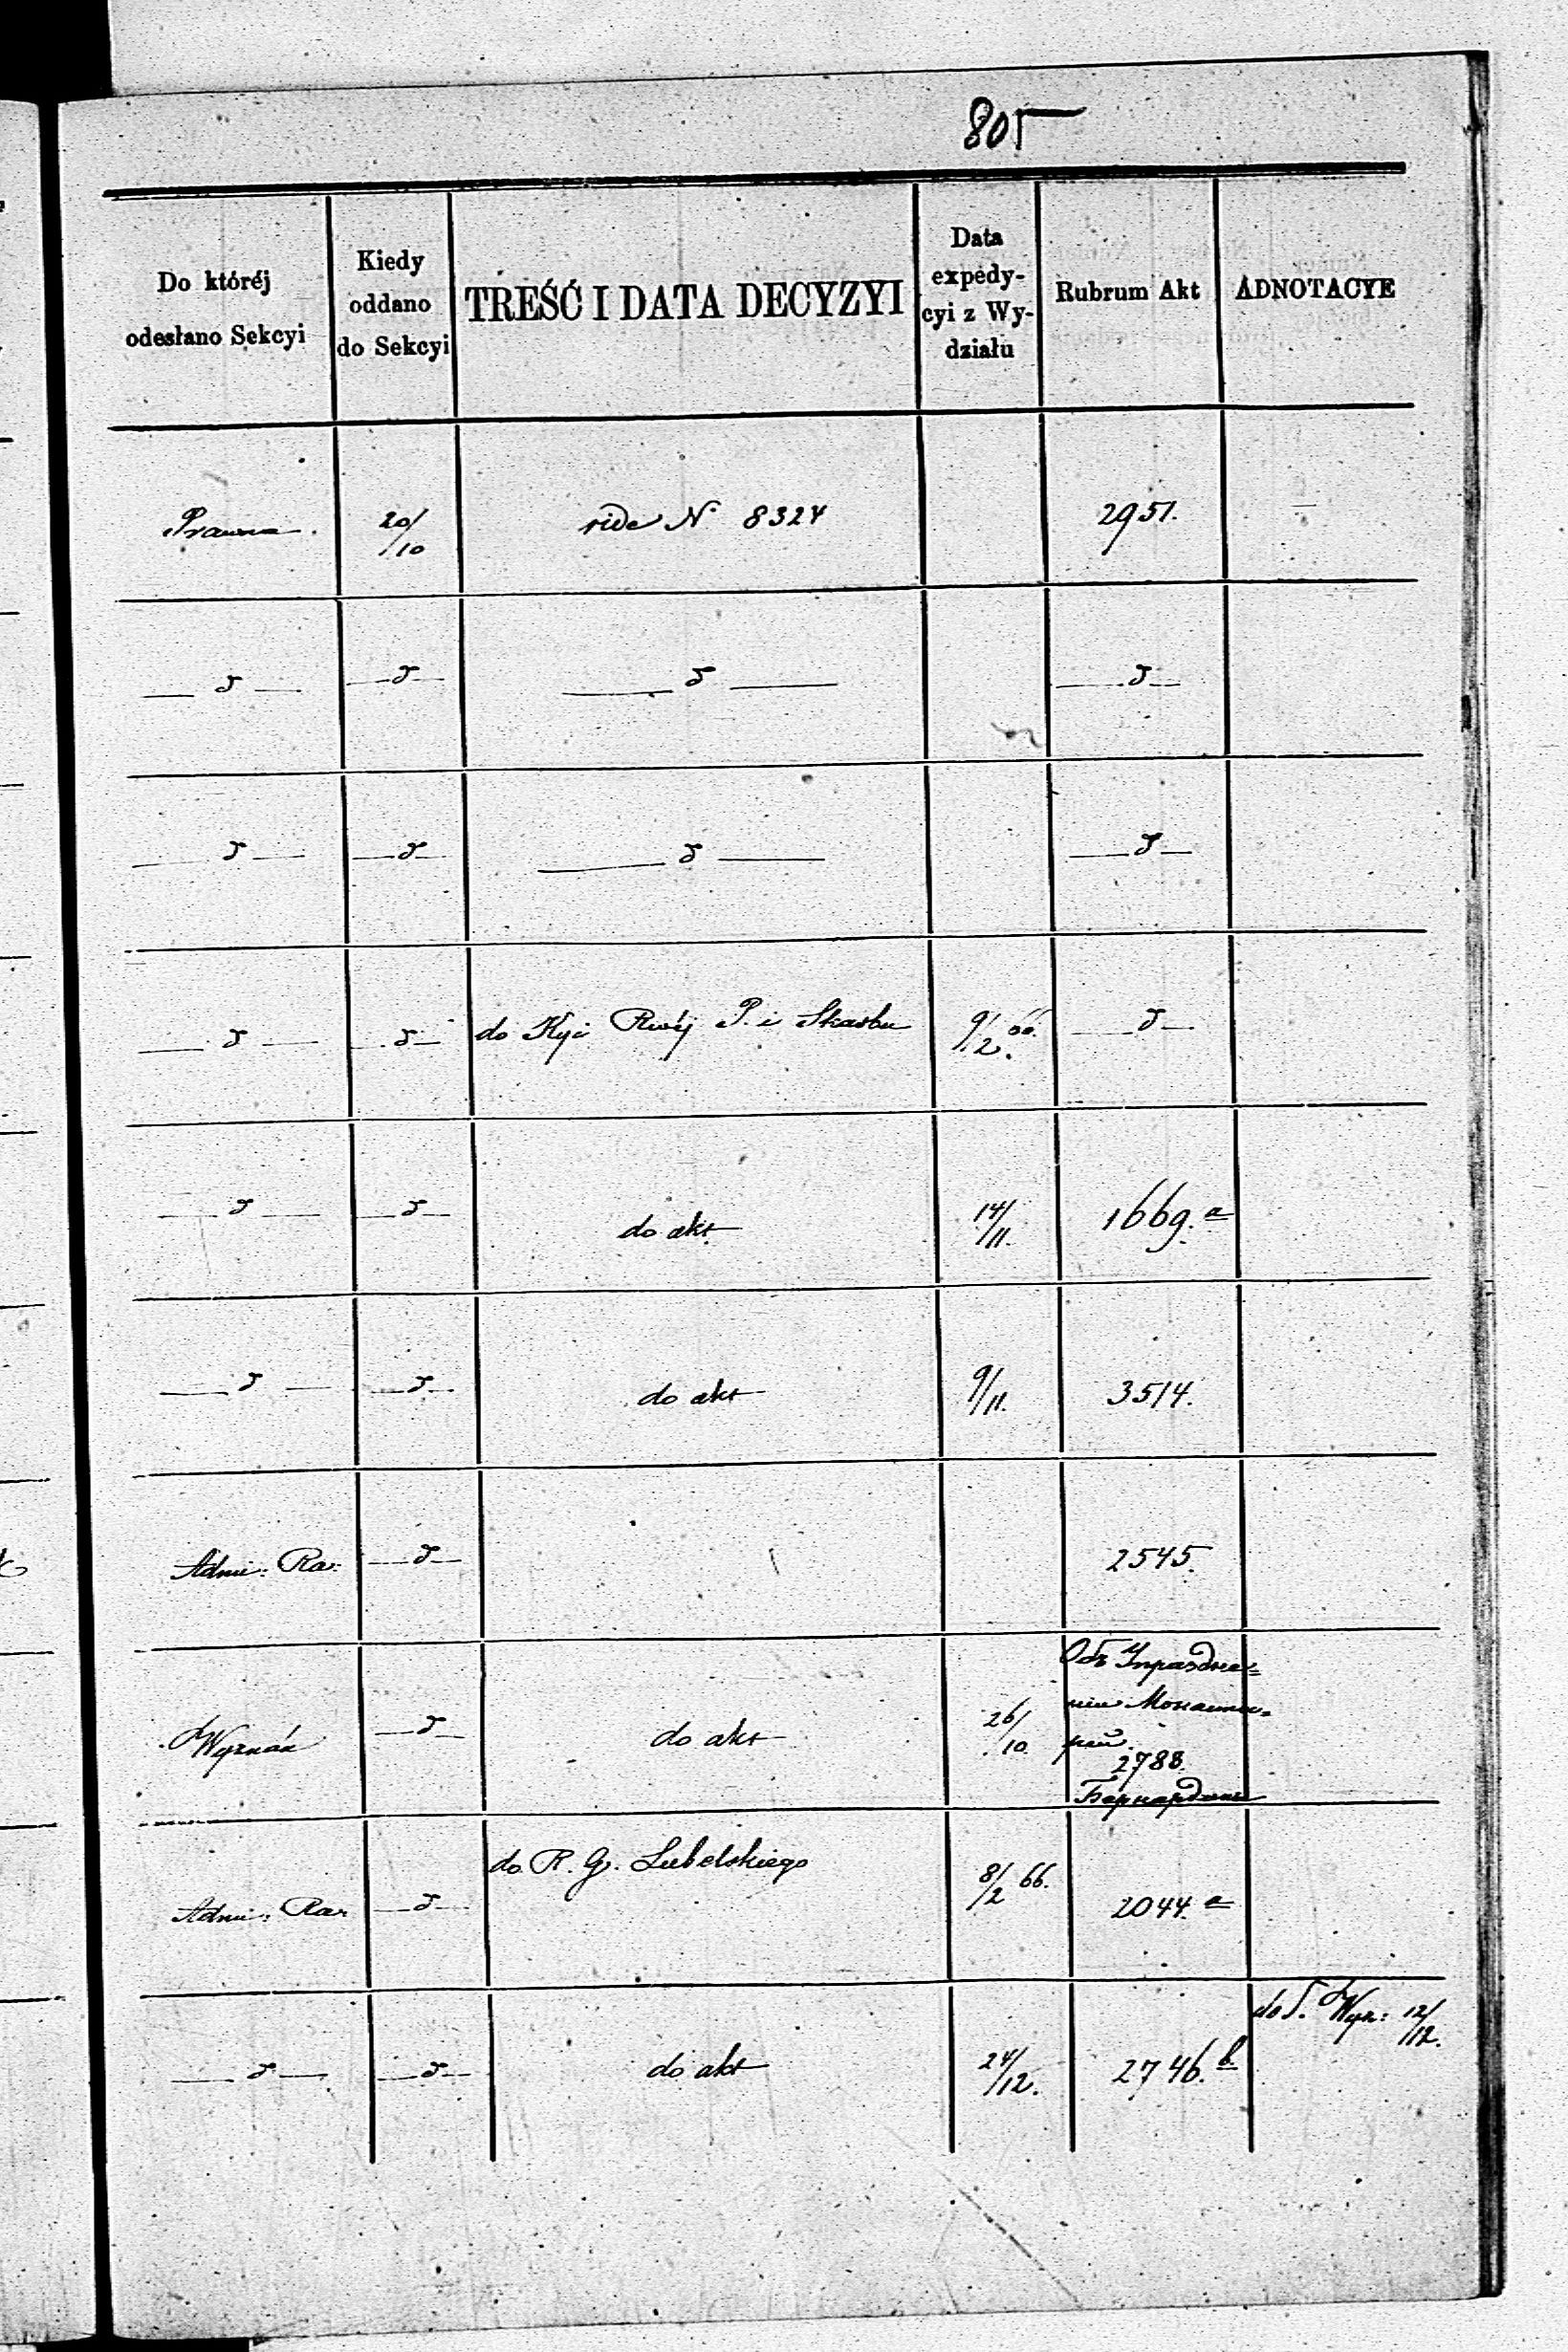 805
Do któréj
odesłano Sekcyi
Kiedy
oddano
do Sekcyi
TREŚĆ I DATA DECYZYI
Data
expedy-
cyi z Wy-
działu
Rubrum Akt
ADNOTACYE
Prawna 20/10 vide N 8324 2951.
— d — — d — — d — — d —
— d — — d — — d — — d —
— d — — d — do Kyi Rwéj P. i Skarbu 9/2 66. — d —
— d — — d — do akt 14/11. 1669. a
— d — — d — do akt 9/11. 3514.
Admi: Ra: — d — 2545.
Объ Упраздне=
нiи Монасты=
рей.
Wyznań — d — do akt 26/10 2788.
Бернардины
Admi: Ra: — d — do R. G. Lubelskiego 8/2 66. 2044. a
do S. Wyz: 12/12.
— d — — d — do akt 24/12. 2746. b.